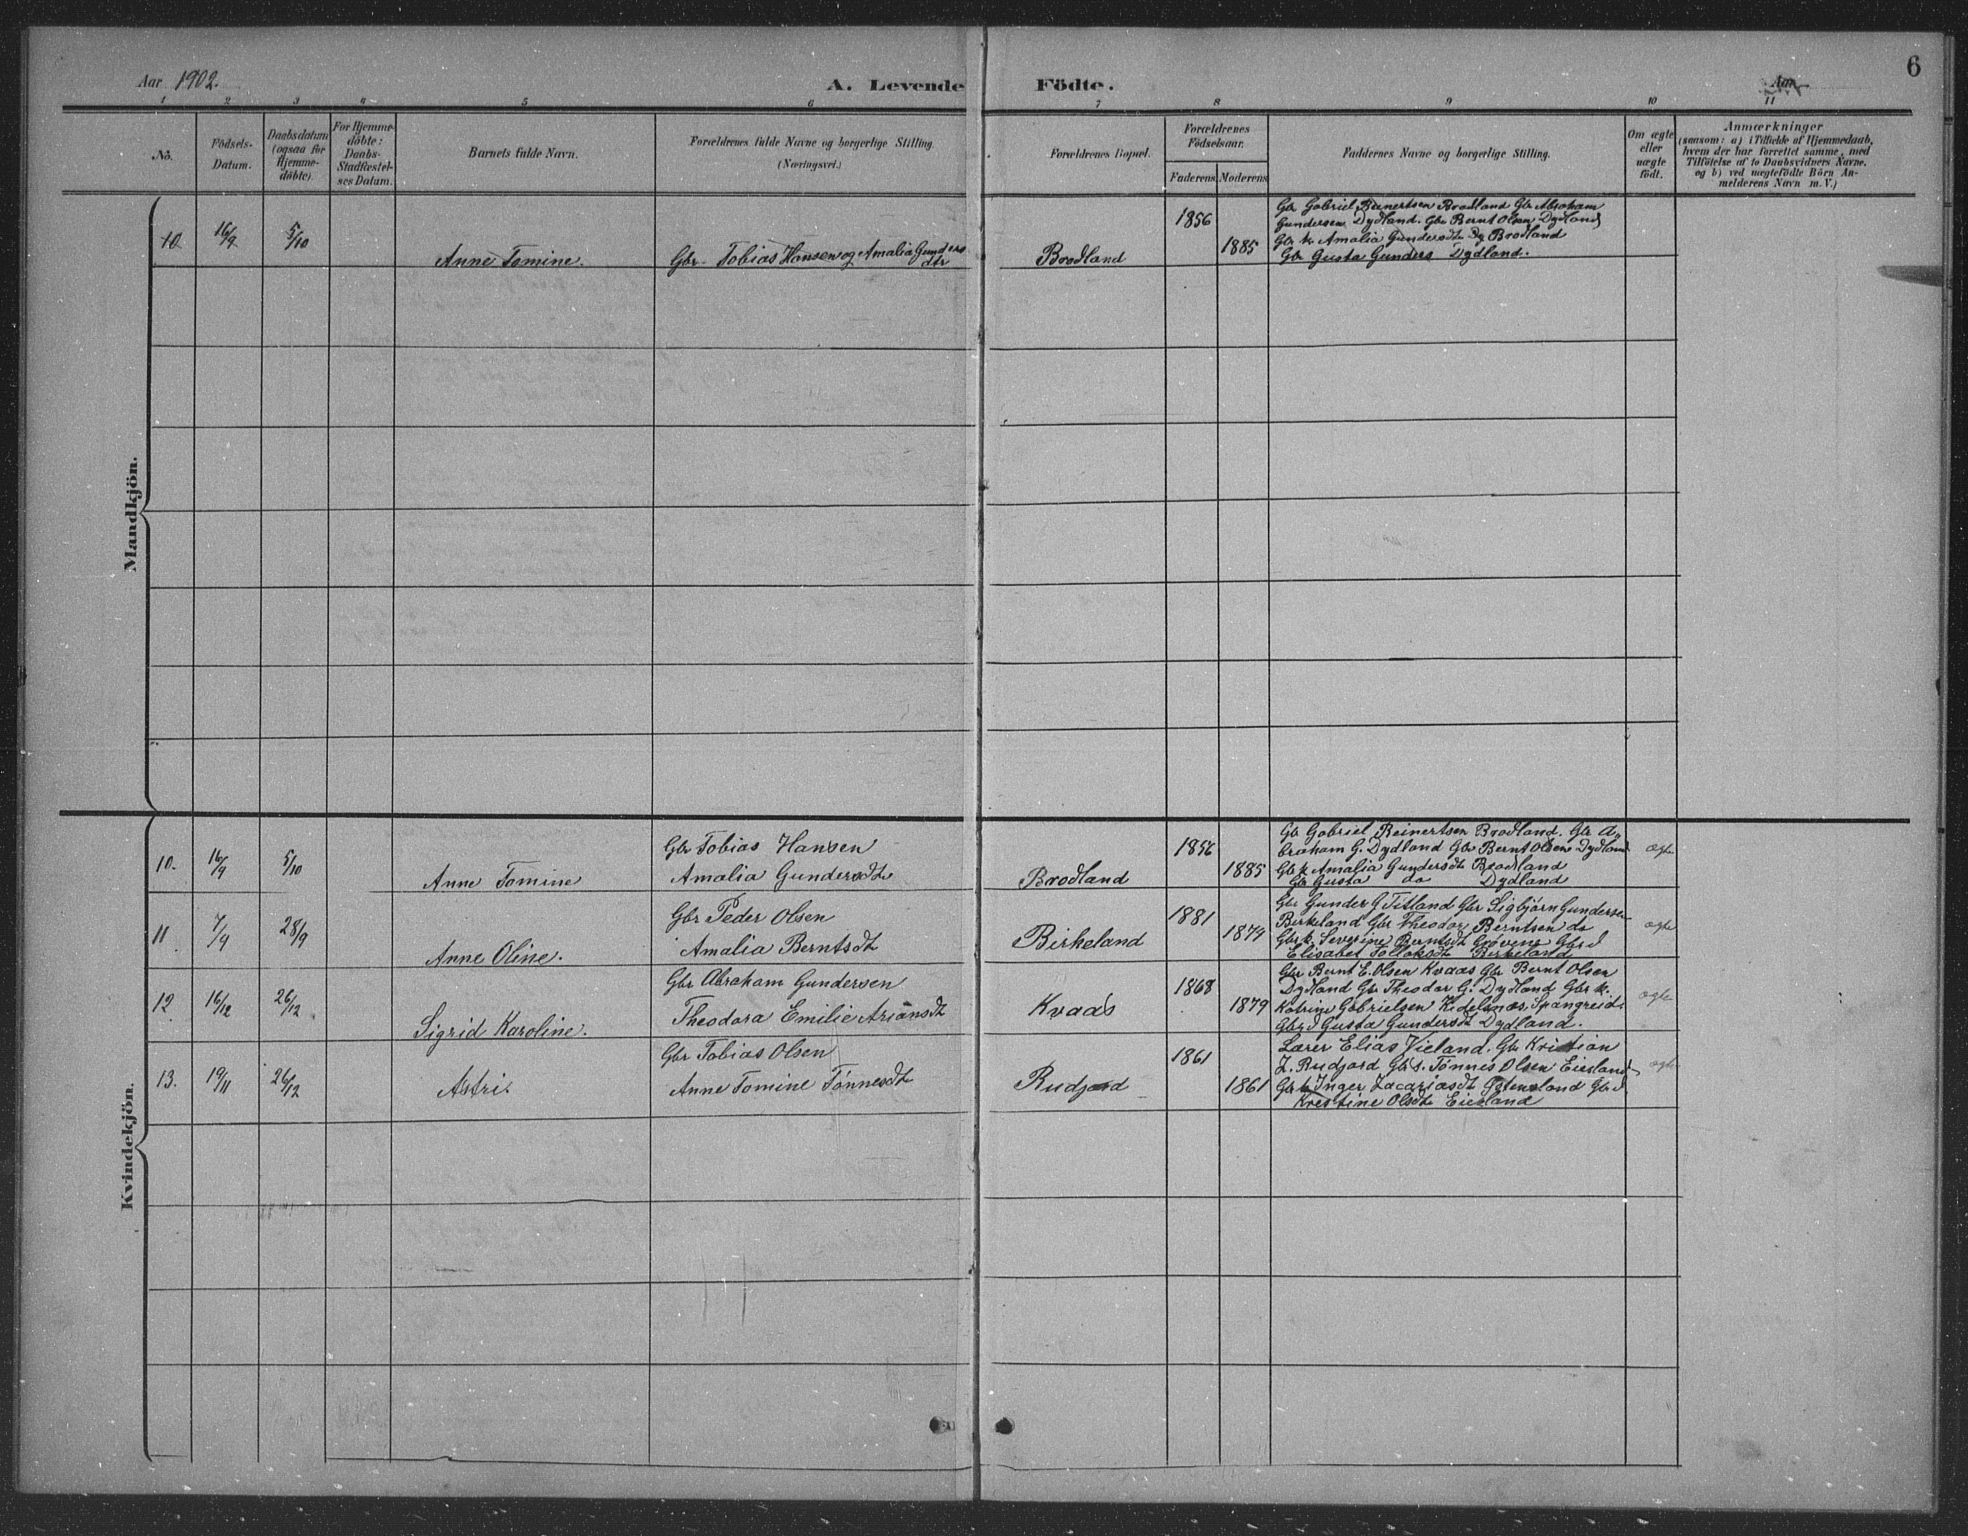 Aar 1902.
A. Levende Födte.
Aar
6
1 2 3 4 5 6 7 8 9 10 11
No.
Födsels-Datum.
Daabsdatum (ogsaa for Hjemme-döbte).
For Hjemme-döbte: Daabs-Stadfæstel-ses Datum.
Barnets fulde Navn.
Forældrenes fulde Navne og borgerlige Stilling. (Næringsvei.)
Forældrenes Bopæl.
Forældrenes Födselsaar.
Faderens. Moderens.
Faddernes Navne og borgerlige Stilling.
Om ægte eller uægte födt.
Anmærkninger
(saasom: a) i Tilfælde af Hjemmedaab, hvem der har forrettet samme, med Tilföielse af to Daabsvidners Navne. og b) ved uægtefödte Börn An-melderens Navn m. V.)
Mandkjön.
10 16/9 5/10 Anne Tomine. Gbr Tobias Hansen og Amalia Gunders dtr Brodland 1856 1885
Gbr Gabriel Reinertsen Brodland Gbr Abraham
Gundersen Dydland. Gbr Bernt Olsen Dydland
Gbr k. Amalia Gundersdt Brodland
Gbr Gusta Gunders Dydland.
Kvindekjön.
10. 16/9 5/10 Anne Tomine
Gbr Tobias Hansen
Amalia Gundersdt
Brodland 1856 1885
Gbr Gabriel Reinertsen Brodland. Gbr A-
braham G. Dydland Gbr Bernt Olsen Dydland
Gbr k Amalia Gundersdt Brodland
Gbr Gusta do Dydland
ægte
11 7/9 28/9 Anne Oline.
Gbr Peder Olsen
Amalia Berntsdt
Birkeland 1881 1879
Gbr Gunder G Titland Gbr Sigbjørn Gundersen
Birkeland Gbr Theodor Berntsen do
Gbr k. Severine Berntsdt Gbr d
Elisabet Birkeland
ægte
12 16/12 26/12 Sigrid Karoline.
Gbr Abraham Gundersen
Theodora Emilie Ariansdt
Kvaas 1868 1879
Gbr Bernt E. Olsen Kvaas Gbr Bernt Olsen
Dydland Gbr Theodor G. Dydland Gbr k.
Katrine Gabrielsen Spangreid
Gbr d Gusta Gundersdt Dydland.
ægte
13. 19/11 26/12 Astri.
Gbr Tobias Olsen
Anne Tomine Tønnesdt
Rudjord 1861 1861
Lærer Elias Vieland. Gbr Kristian
Z. Rudjord Gbr s. Tønnes Olsen Eiesland
Gbr k Inger Zacariasdt Østensland Gbr d
Krestine Olsdt Eiesland
ægte